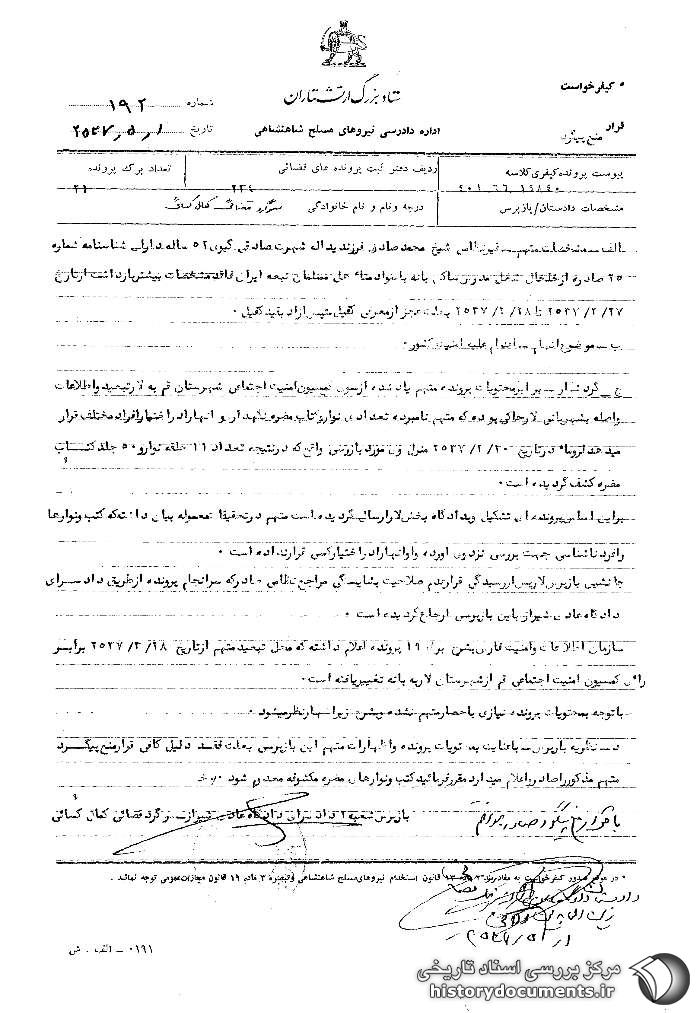 * کیفرخواست
ستاد بزرگ ارتشتاران
شماره ۱۹۲
قرار منع پیگرد
اداره دادرسی نیروهای مسلح شاهنشاهی
تاریخ ۲۵۳۷/۵/۱
پیوست پرونده کیفری کلاسه
ردیف دفتر ثبت پرونده های قضائی
تعداد برگ پرونده
۲۳۴
۲۱
مشخصات دادستان/بازپرس
درجه و نام و نام خانوادگی
سرگرد قضائی کمال کسائی
الف ــ مشخصات متهم ــ غیرنظامی شیخ محمد صادق فرزند یداله شهرت صادقی گیوی ۵۲ ساله دارای شناسنامه شماره
۲۵ صادره از خلخال شغل مدرس ساکن بانه با سواد متاهل مسلمان تبعه ایران فاقد مشخصات بیشتر بازداشت از تاریخ
۲۵۳۷/۲/۲۷ تا ۲۵۳۷/۲/۲۸ بعلت عجز از معرفی کفیل سپس آزاد بقید کفیل ۰
ب ــ موضوع اتهام ــ اقدام علیه امنیت کشور ۰
ج ــ گردشکار ــ برابر محتویات پرونده متهم یاد شده از سوی کمیسیون امنیت اجتماعی شهرستان قم به لار تبعید و اطلاعات
واصله بشهربانی لار حاکی بوده که متهم نامبرده تعدادی نوار و کتاب مضره نگهدار و آنها را در اختیار افراد مختلف قرار
میدهد لزوما" در تاریخ ۲۵۳۷/۲/۲۰ منزل وی مورد بازرسی واقع که در نتیجه تعداد ۱۱ حلقه نوار و ۵۰ جلد کتاب
مضره کشف گردیده است ۰
براین اساس پرونده ای تشکیل و بدادگاه بخش لار ارسال گردیده است متهم در تحقیقات معموله بیان داشته که کتب و نوارها
را فرد ناشناسی جهت بررسی نزد وی آورده و او آنها را در اختیار کسی قرار نداده است ۰
جانشین بازپرس لار پس از رسیدگی قرار عدم صلاحیت بشایستگی مراجع نظامی صادر که سرانجام پرونده از طریق دادسرای
دادگاه عادی شیراز باین بازپرسی ارجاع گردیده است ۰
سازمان اطلاعات و امنیت فارس بشرح برگ ۱۹ پرونده اعلام داشته که محل تبعید متهم از تاریخ ۲۵۳۷/۳/۲۸ برابر
رای کمیسیون امنیت اجتماعی قم از شهرستان لار به بانه تغییر یافته است ۰
با توجه بمحتویات پرونده نیازی باحضار متهم نشده و بشرح زیر اظهار نظر میشود ۰
د ــ نظریه بازپرس ــ با عنایت به محتویات پرونده و اظهارات متهم این بازپرس بعلت فقد دلیل کافی قرار منع پیگرد
متهم مذکور را صادر و اعلام میدارد مقرر فرمائید کتب و نوارهای مضره مکشوفه معدوم شود ۰
بازپرس شعبه ۲ دادسرای دادگاه عادی شیراز ــ سرگرد قضائی کمال کسائی
با قرار منع پیگرد صادره موافقم
* در موقع صدور کیفرخواست به مفاد قانون استخدام نیروهای مسلح شاهنشاهی و تبصره ۳ ماده ۱۹ قانون مجازات عمومی توجه نمائید .
۰۱۹۱ – الف . ش
مرکز بررسی اسناد تاریخی
historydocuments.ir